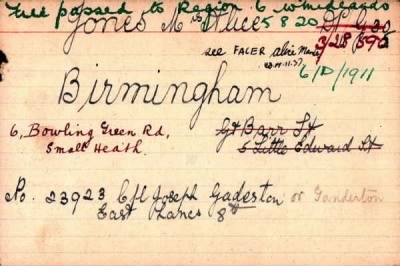 File passed to Region 6 W Midlands
Jones Mrs Alice 5820
see FACER Alice Maud
3/28/595
6/D/1911
Birmingham
6, Bowling Green Rd, Gt Barr St
Small Heath. 5 Little Edward St
No. 23923 Cpl Joseph Gaderton or Ganderton
East Lancs 8th